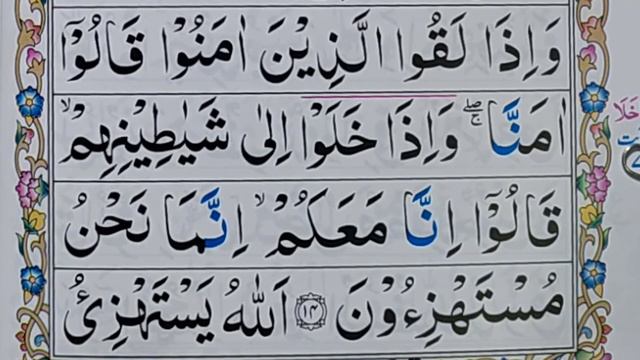 وَاِذَا لَقُوا الَّذِيْنَ اٰمَنُوْا قَالُوْٓا
اٰمَنَّا ۖۚ وَاِذَا خَلَوْا اِلٰى شَيٰطِيْنِهِمْ ۙ
قَالُوْٓا اِنَّا مَعَكُمْ ۙ اِنَّمَا نَحْنُ
مُسْتَهْزِءُوْنَ ﴿۱۴﴾ اَللّٰهُ يَسْتَهْزِئُ
خَلَا